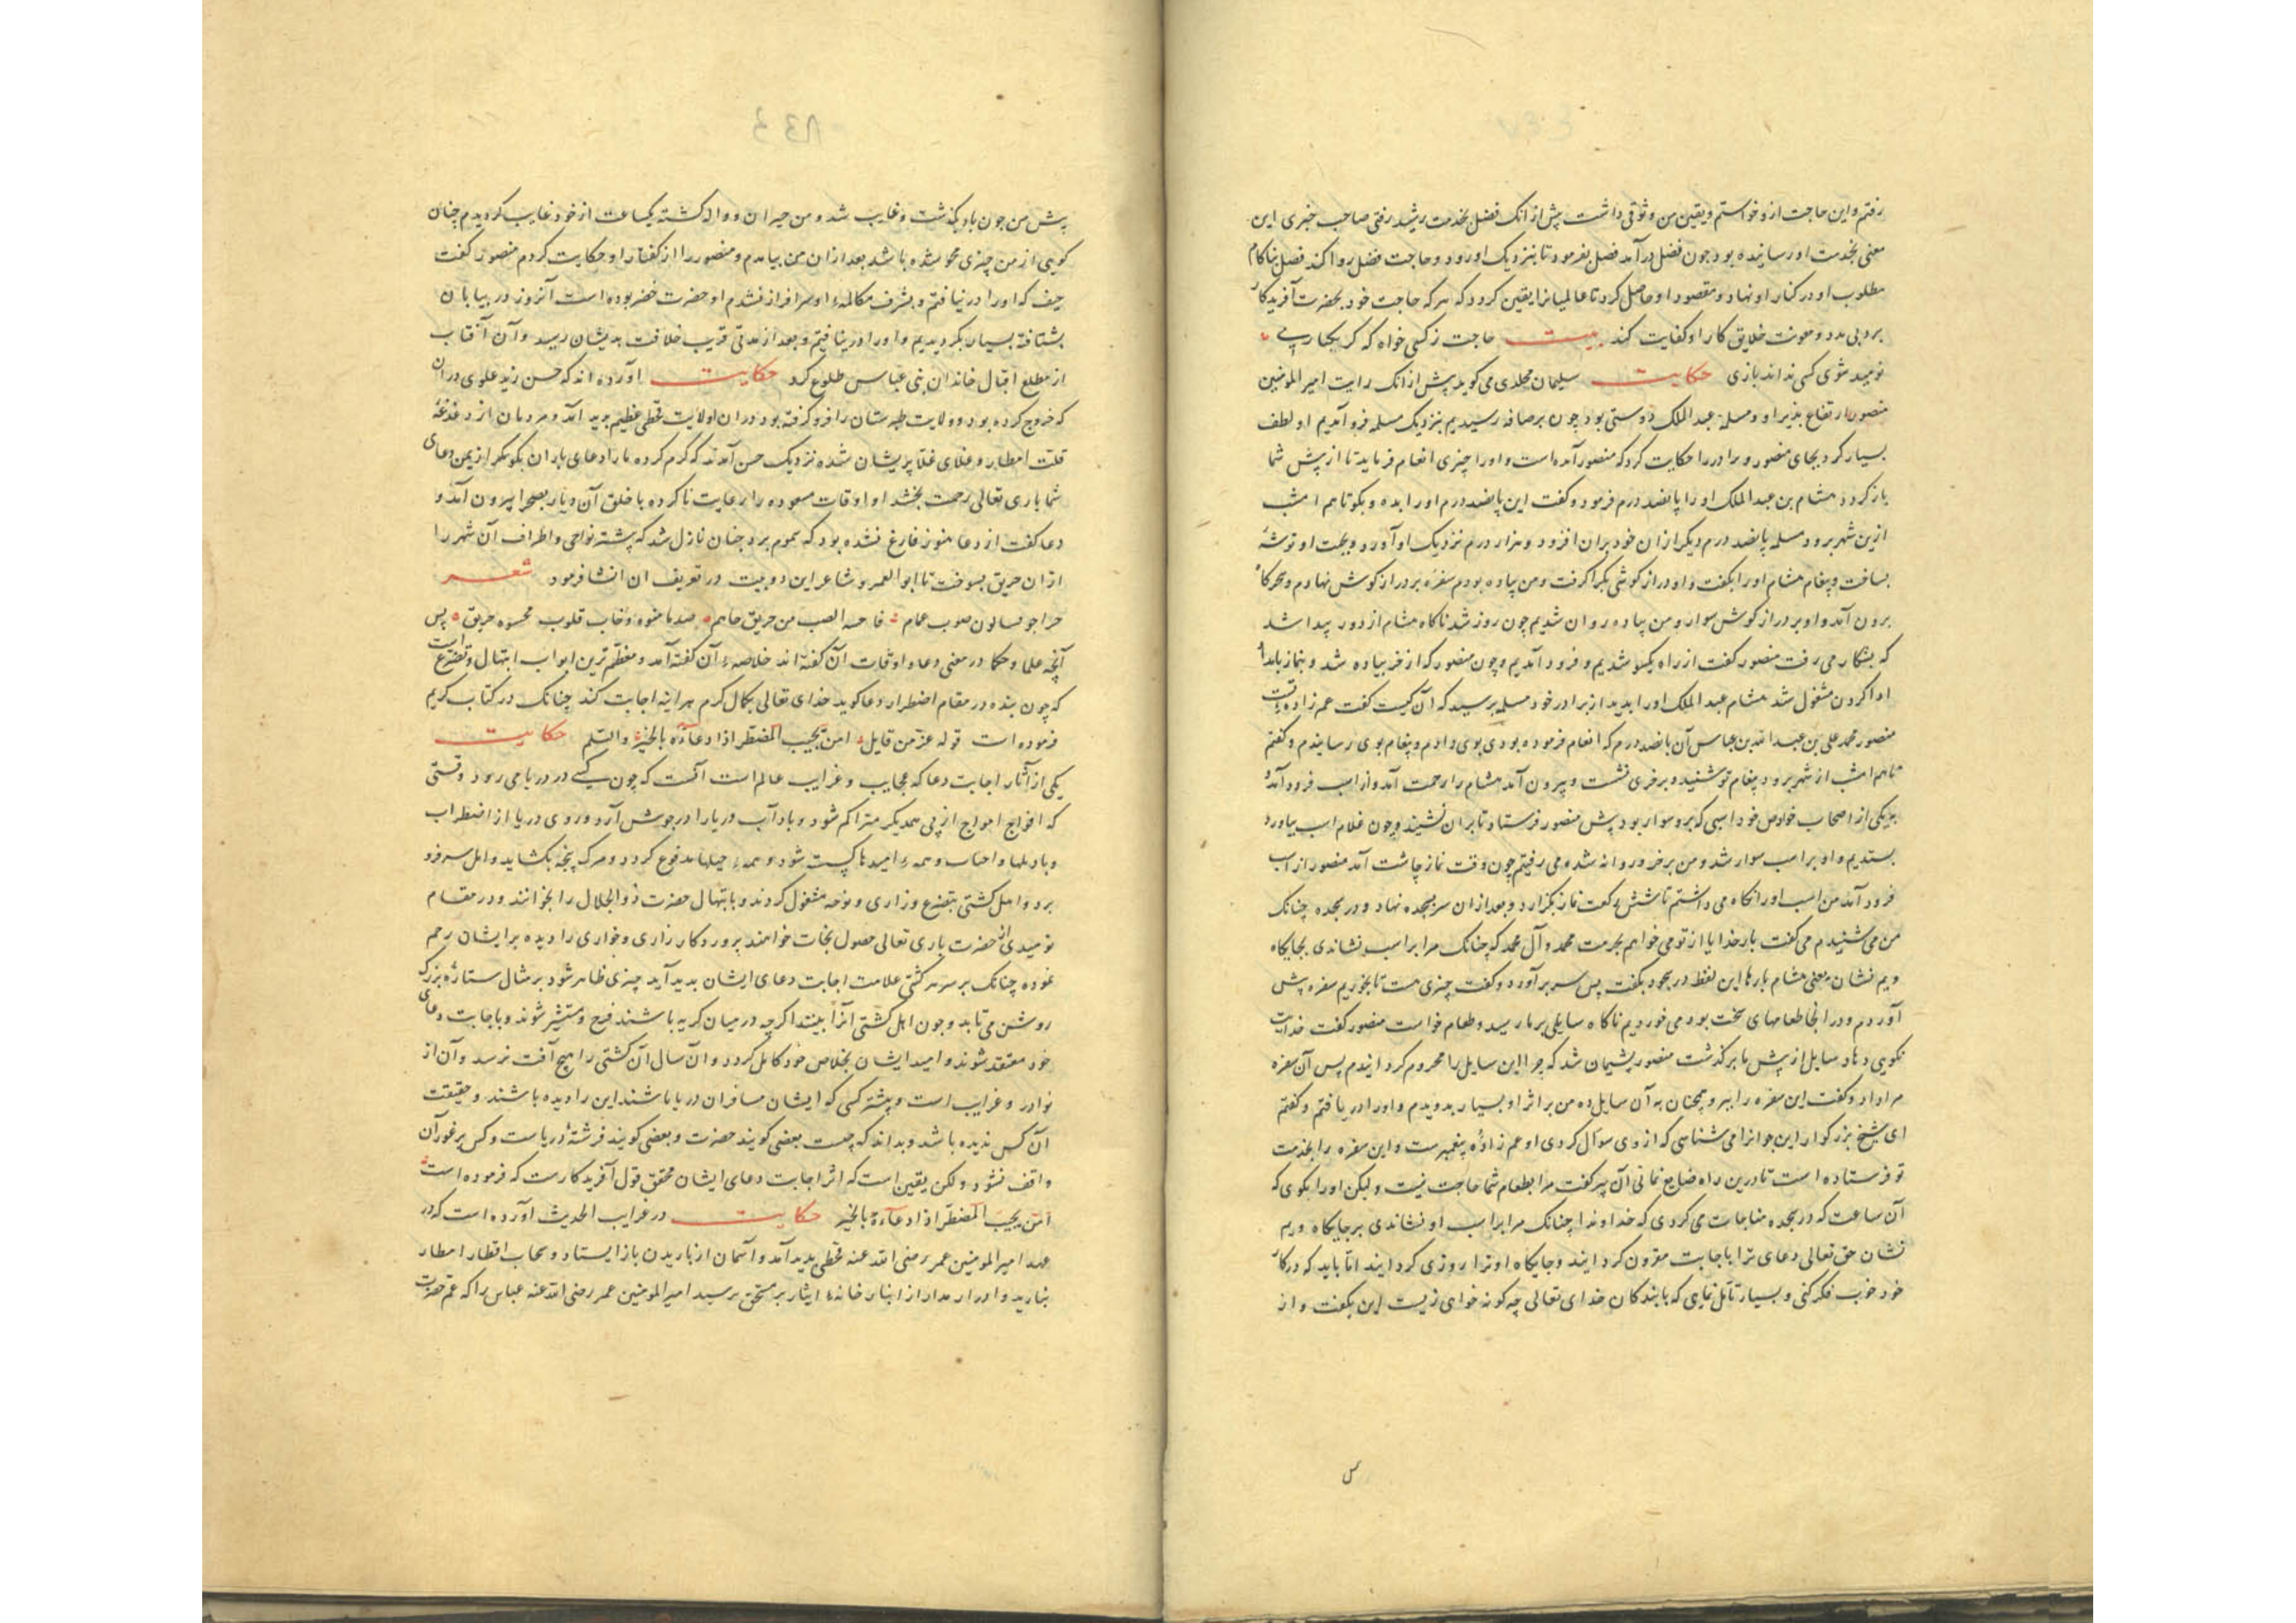 رفتم و این حاجت ازو خواستم و یقین من وثوقی داشت پیش از انک فضل بخدمت رشید رفتی صاحب خبری این
معنی بخدمت او رسانیده بود چون فضل درآمد فضل بفرمود تا بنزدیک او رود و حاجت فضل روا کند فضل بناکام
مطلوب او در کنار او نهاد و مقصود او حاصل کرد تا عالمیانرا یقین کردد که هرکه حاجت خود بحضرت آفریدکار
برد بی مدد و معونت خلایق کار او کفایت کند بیت حاجت ز کسی خواه که کر یکبار پی
نومید شوی کسی نداند بازی حکایت سلیمان مجلدی می کوید پیش از انک رایت امیر المومنین
منصور ارتفاع پذیر او و مسلمة عبد الملک دوستی بود چون برصافه رسیدیم بنزدیک مسلمه فرو آمدیم او لطف
بسیار کرد بجای منصور و برادر را حکایت کرد که منصور آمده است و او را چیزی انعام فرماید تا از پیش شما
باز کردد هشام بن عبد الملک او را پانصد درم فرمود و گفت این پانصد درم او را بده و بکو تا هم امشب
ازین شهر برود مسلمه پانصد درم دیکر از ان خود بران افزود و هزار درم نزدیک او آورد و بجهت او توشهٔ
بساخت و پیغام هشام او را بکفت و او درازکوشی بکرا کرفت و من پیاده بودم سفره بر درازکوش نهادم و سحرکاه
برون آمد و او بر درازکوش سوار و من پیاده روان شدیم چون روز شد ناکاه هشام از دور پیدا شد
که بشکار می رفت منصور کفت از راه یکسو شدیم و فرود آمدیم و چون منصور که از خر پیاده شد و بنماز بامداد
ادا کردن مشغول شد هشام عبد الملک او را بدید از برادر خود مسلمه پرسید که آن کیست کفت عم زاده تست
منصور محمد علی بن عبد الله بن عباس آن پانصد درم که انعام فرموده بودی بوی دادم و پیغام بوی رسانیدم و کفتم
تا هم امشب از شهر برود پیغام تو شنید و بر خری نشست و بیرون آمد هشام را رحمت آمد و از اسب فرود آمد و
یکی از اصحاب خواص خود اسبی که برو سوار بود پیش منصور فرستاد تا بران نشیند و چون غلام اسب بیاورد
بستدیم و او بر اسب سوار شد و من بر خر و روانه شده می رفتیم چون وقت نماز چاشت آمد منصور از اسب
فرود آمد من اسب او را نکاه می داشتم تا شش رکعت نماز بکزارد و بعد از ان سر بسجده نهاد و در سجده چنانک
من می شنیدم می کفت بار خدایا از تو می خواهم بحرمت محمد و آل محمد که چنانک مرا بر اسب نشاندی بجایکاه
ویم نشان یعنی هشام بارها این لفظ در سجود بکفت پس سر برآورد و کفت چیزی هست تا بخوریم سفره پیش
آوردم و در انجا طعامهای سخت بود می خوردیم ناکاه سایلی بر ما رسید و طعام خواست منصور کفت خدایت
نکویی دهاد سایل از پیش ما برکذشت منصور پشیمان شد که چرا این سایل را محروم کردانیدم پس آن سفره
مرا داد و کفت این سفره را ببر و همچنان به آن سایل ده من بر اثر او بسیار بدویدم و او را دریافتم و کفتم
ای شیخ بزرکوار این جوانرا می شناسی که از وی سوال کردی او عم زادهٔ پیغمبرست و این سفره را بخدمت
تو فرستاده است تا درین راه ضایع نمانی آن پیر کفت مرا بطعام شما حاجت نیست و لیکن او را بکوی که
آن ساعت که در سجده مناجات می کردی که خداوندا چنانک مرا بر اسب او نشاندی بر جایکاه ویم
نشان حق تعالی دعای ترا باجابت مقرون کردانید و جایکاه او ترا روزی کردانید اما باید که در کار
خود خوب فکر کنی و بسیار تامل نمای که با بندکان خدای تعالی چه کونه خواهی زیست این بکفت و از
پیش من چون باد بکذشت و غایب شد و من حیران و واله کشته یکساعت از خود غایب کردیدم چنان
کویی از من چیزی محو شده باشد بعد ازان من بیامدم و منصور را از کفتار او حکایت کردم منصور کفت
حیف که او را در نیافتم و بشرف مکالمهٔ او سرافراز نشدم او حضرت خضر بوده است آنروز در بیابان
بشتافته بسیار بکردیدیم و او را در نیافتیم و بعد از مدتی قریب خلافت بدیشان رسید و آن آفتاب
از مطلع اقبال خاندان بنی عباس طلوع کرد حکایت آورده اند که حسن زید علوی دران
که خروج کرده بود و ولایت طبرستان را فرو کرفته بود دران ولایت قحطی عظیم پدید آمد و مردمان از دغدغهٔ
قلت امطار و غلای غلا پریشان شده نزدیک حسن آمدند که کرم کرده ما را دعای باران بکو مکر از یمن دعای
شما باری تعالی رحمت بخشد او اوقات مسعوده را رعایت ناکرده با خلق آن دیار بصحرا بیرون آمد و
دعا کفت از دعا هنوز فارغ نشده بود که سموم برد چنان نازل شد که پشته نواحی و اطراف آن شهر را
ازان حریق بسوخت تا ابو العمر و شاعر این دو بیت در تعریف ان انشا فرمود شعر
قلوب محسوه حریق پس
آنچه علما و حکما در معنی دعا و اوقات آن کفته اند خلاصهٔ آن کفته آمد و معظم ترین ابواب ابتهال و تضرع است
که چون بنده در مقام اضطرار دعا کوید خدای تعالی بکمال کرم هراینه اجابت کند چنانک در کتاب کریم
فرموده است قوله عز من قایل امن یجیب المضطر اذا دعاه بالخیر والسلم حکایت
یکی از آثار اجابت دعا که عجایب و غرایب عالم است آنست که چون کسی در دریا می رود وقتی
که افواج امواج از پی همدیکر متراکم شود و باد آب دریا را در جوش آرد و روی دریا از اضطراب
همهٔ امیدها کسسته شود و همهٔ حیلها مدفوع کردد و مرک پنجه بکشاید و اهل سر فرو
برد و اهل کشتی بتضرع و زاری و نوحه مشغول کردند و بابتهال حضرت ذو الجلال را بخوانند و در مقام
نومیدی از حضرت باری تعالی حصول نجات خواهند پروردکار زاری و خواری را دیده بر ایشان رحم
نموده چنانک بر سر هر کشتی علامت اجابت دعای ایشان پدید آید چیزی ظاهر شود بر مثال ستارهٔ بزرک
روشن می تابد و چون اهل کشتی آنرا ببینند اکرچه در میان کریه باشند فرح و مستبشر شوند و باجابت دعای
خود معتقد شوند و امید ایشان بخلاص خود کامل کردد و ان سال آن کشتی را هیچ آفت نرسد و آن از
نوادر و غرایب است و بیشتر کسی که ایشان مسافران دریا باشند این را دیده باشند و حقیقت
آن کس ندیده باشد و بداند که چیست بعضی کویند حضرت و بعضی کویند فرشتهٔ دریاست و کس بر غور آن
واقف نشود ولکن یقین است که اثر اجابت دعای ایشان محقق قول آفریدکارست که فرموده است
امن یجیب المضطر اذا دعاه بالخیر حکایت در غرایب الحدیث آورده است که در
عهد امیر المومنین عمر رضی الله عنه قحطی پدید آمد و آسمان از باریدن باز ایستاد و سحاب اقطار امطار
نبارید و ادرار مدرار از انبار خانهٔ ایثار بر مستحق نرسید امیر المومنین عمر رضی الله عنه عباس را که عم حضرت